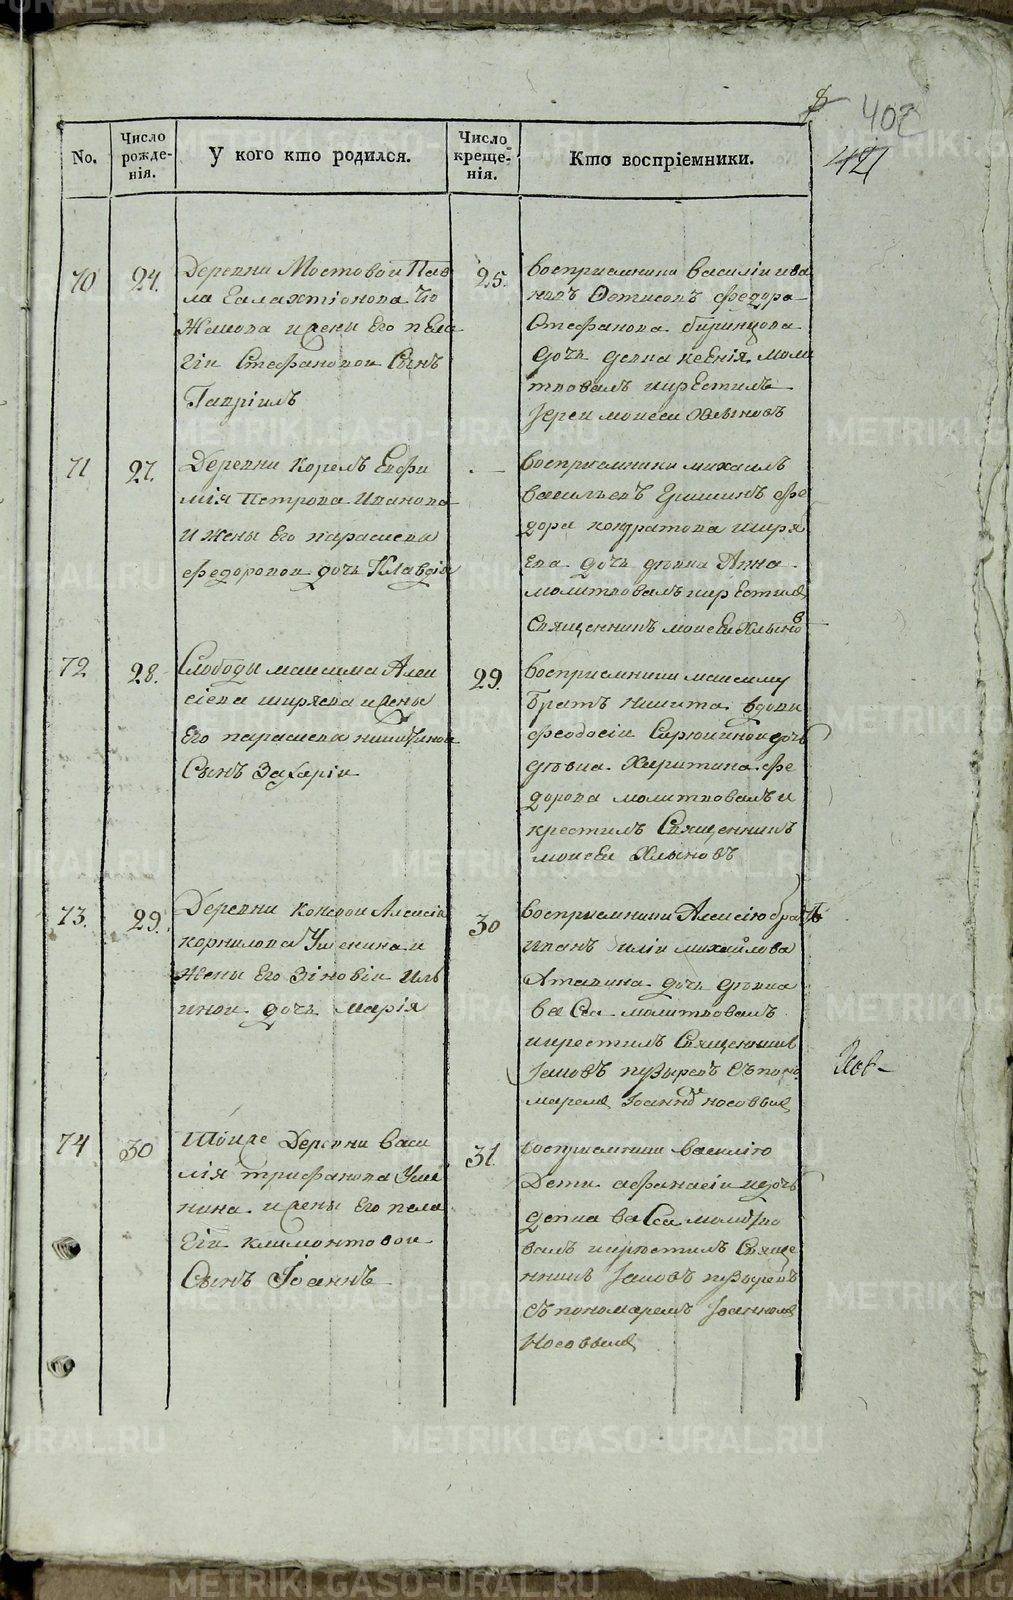 402
421
No.
Число рожде-нія.
У кого кто родился.
Число креще-нія.
Кто воспріемники.
70
24.
Деревни Мостовои Пав
ла Галахтіонова
и жены Его пела
гіи Стефановои Сынъ
Гавріилъ
25.
Восприемники василіи ива
новъ Фетисовъ федора
Стефанова
дочь девка ксенія моли
твовалъ икрестилъ
Іереи моисеи Хлыновъ
71
27.
Деревни Корелъ Евфи
мія Петрова Иванова
и жены Его параскевы
федоровои дочь Клавдія
восприемники михаилъ
васильевъ Гришинъ фе
дора кондратова ширя
ева дочь девка Анна
молитвовалъ икрестилъ
Священникъ моисеи Хлыновъ
72
28.
Слободы максима Алек
сіева ширяева и жены
Его параскевы никитинои
Сынъ Захаріи
29.
Восприемники максиму
братъ никита вдовы
феодосіи дочь
девка Харитина фе
дорова молитвовалъ и
крестилъ Священникъ
моисеи Хлыновъ
73.
29.
Деревни коневои Алексія
корнилова Ушенина и
жены Его Зіновіи Иль
инои дочь марія
30
восприемники Алексію братъ
иванъ иліи михаилова
Аталина дочь девка
васса молитвовалъ
икрестилъ Священникъ
Іаковъ пузыревъ съ поно
маремъ Іоанномъ носовымъ
Іаков-
74
30
Тоиже Деревни васи
лія трифанова Уше
нина и жены Его пела
гіи климонтовои
Сынъ Іоаннъ
31.
восприемники василію
Дети афанасіи идочь
девка васса молитво
валъ икрестилъ Свяще
нникъ Іаковъ пузыревъ
съ пономаремъ Іоанномъ
Носовымъ
METRIKI.GASO-URAL.RU